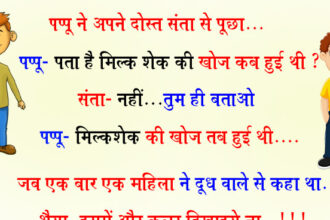 पप्पू ने अपने दोस्त संता से पूछा...
पप्पू- पता है मिल्क शेक की खोज कब हुई थी ?
संता- नहीं...तुम ही बताओ
पप्पू- मिल्कशेक की खोज तब हुई थी....
जब एक बार एक महिला ने दूध वाले से कहा था.